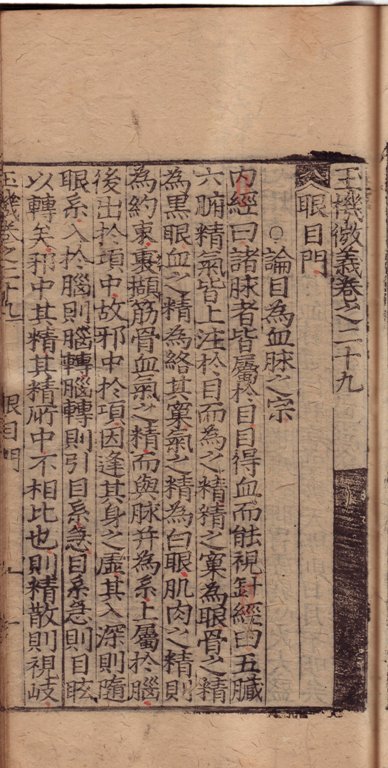 玉機微義卷之二十九
眼目門
○論目為血脉之宗
内經曰諸脉者皆屬於目目得血而能視針經曰五臟
六腑精氣皆上注於目而為之精精之窠為眼骨之精
為黑眼血之精為絡其窠氣之精為白眼肌肉之精則
為約束裹擷筋骨血氣之精而與脉并為系上屬於腦
後出於項中故邪中於項因逢其身之虛其入深則隨
眼系入於腦則腦轉腦轉則引目系急目系急則目眩
以轉矣邪中其精其精所中不相比也則精散則視岐
玉機卷之二十九 眼目門